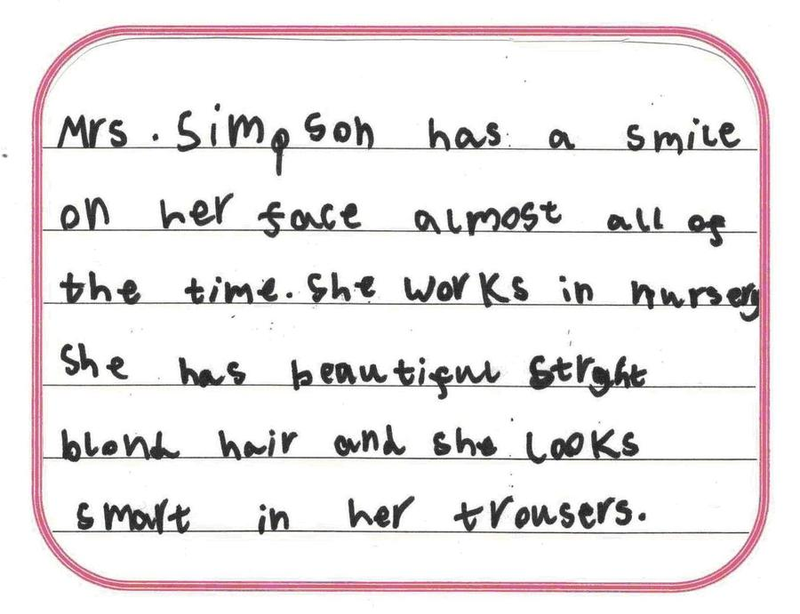 Mrs. Simpson has a smile
on her face almost all of
the time. She works in nursery
She has beautiful strght
blond hair and she looks
smart in her trousers.